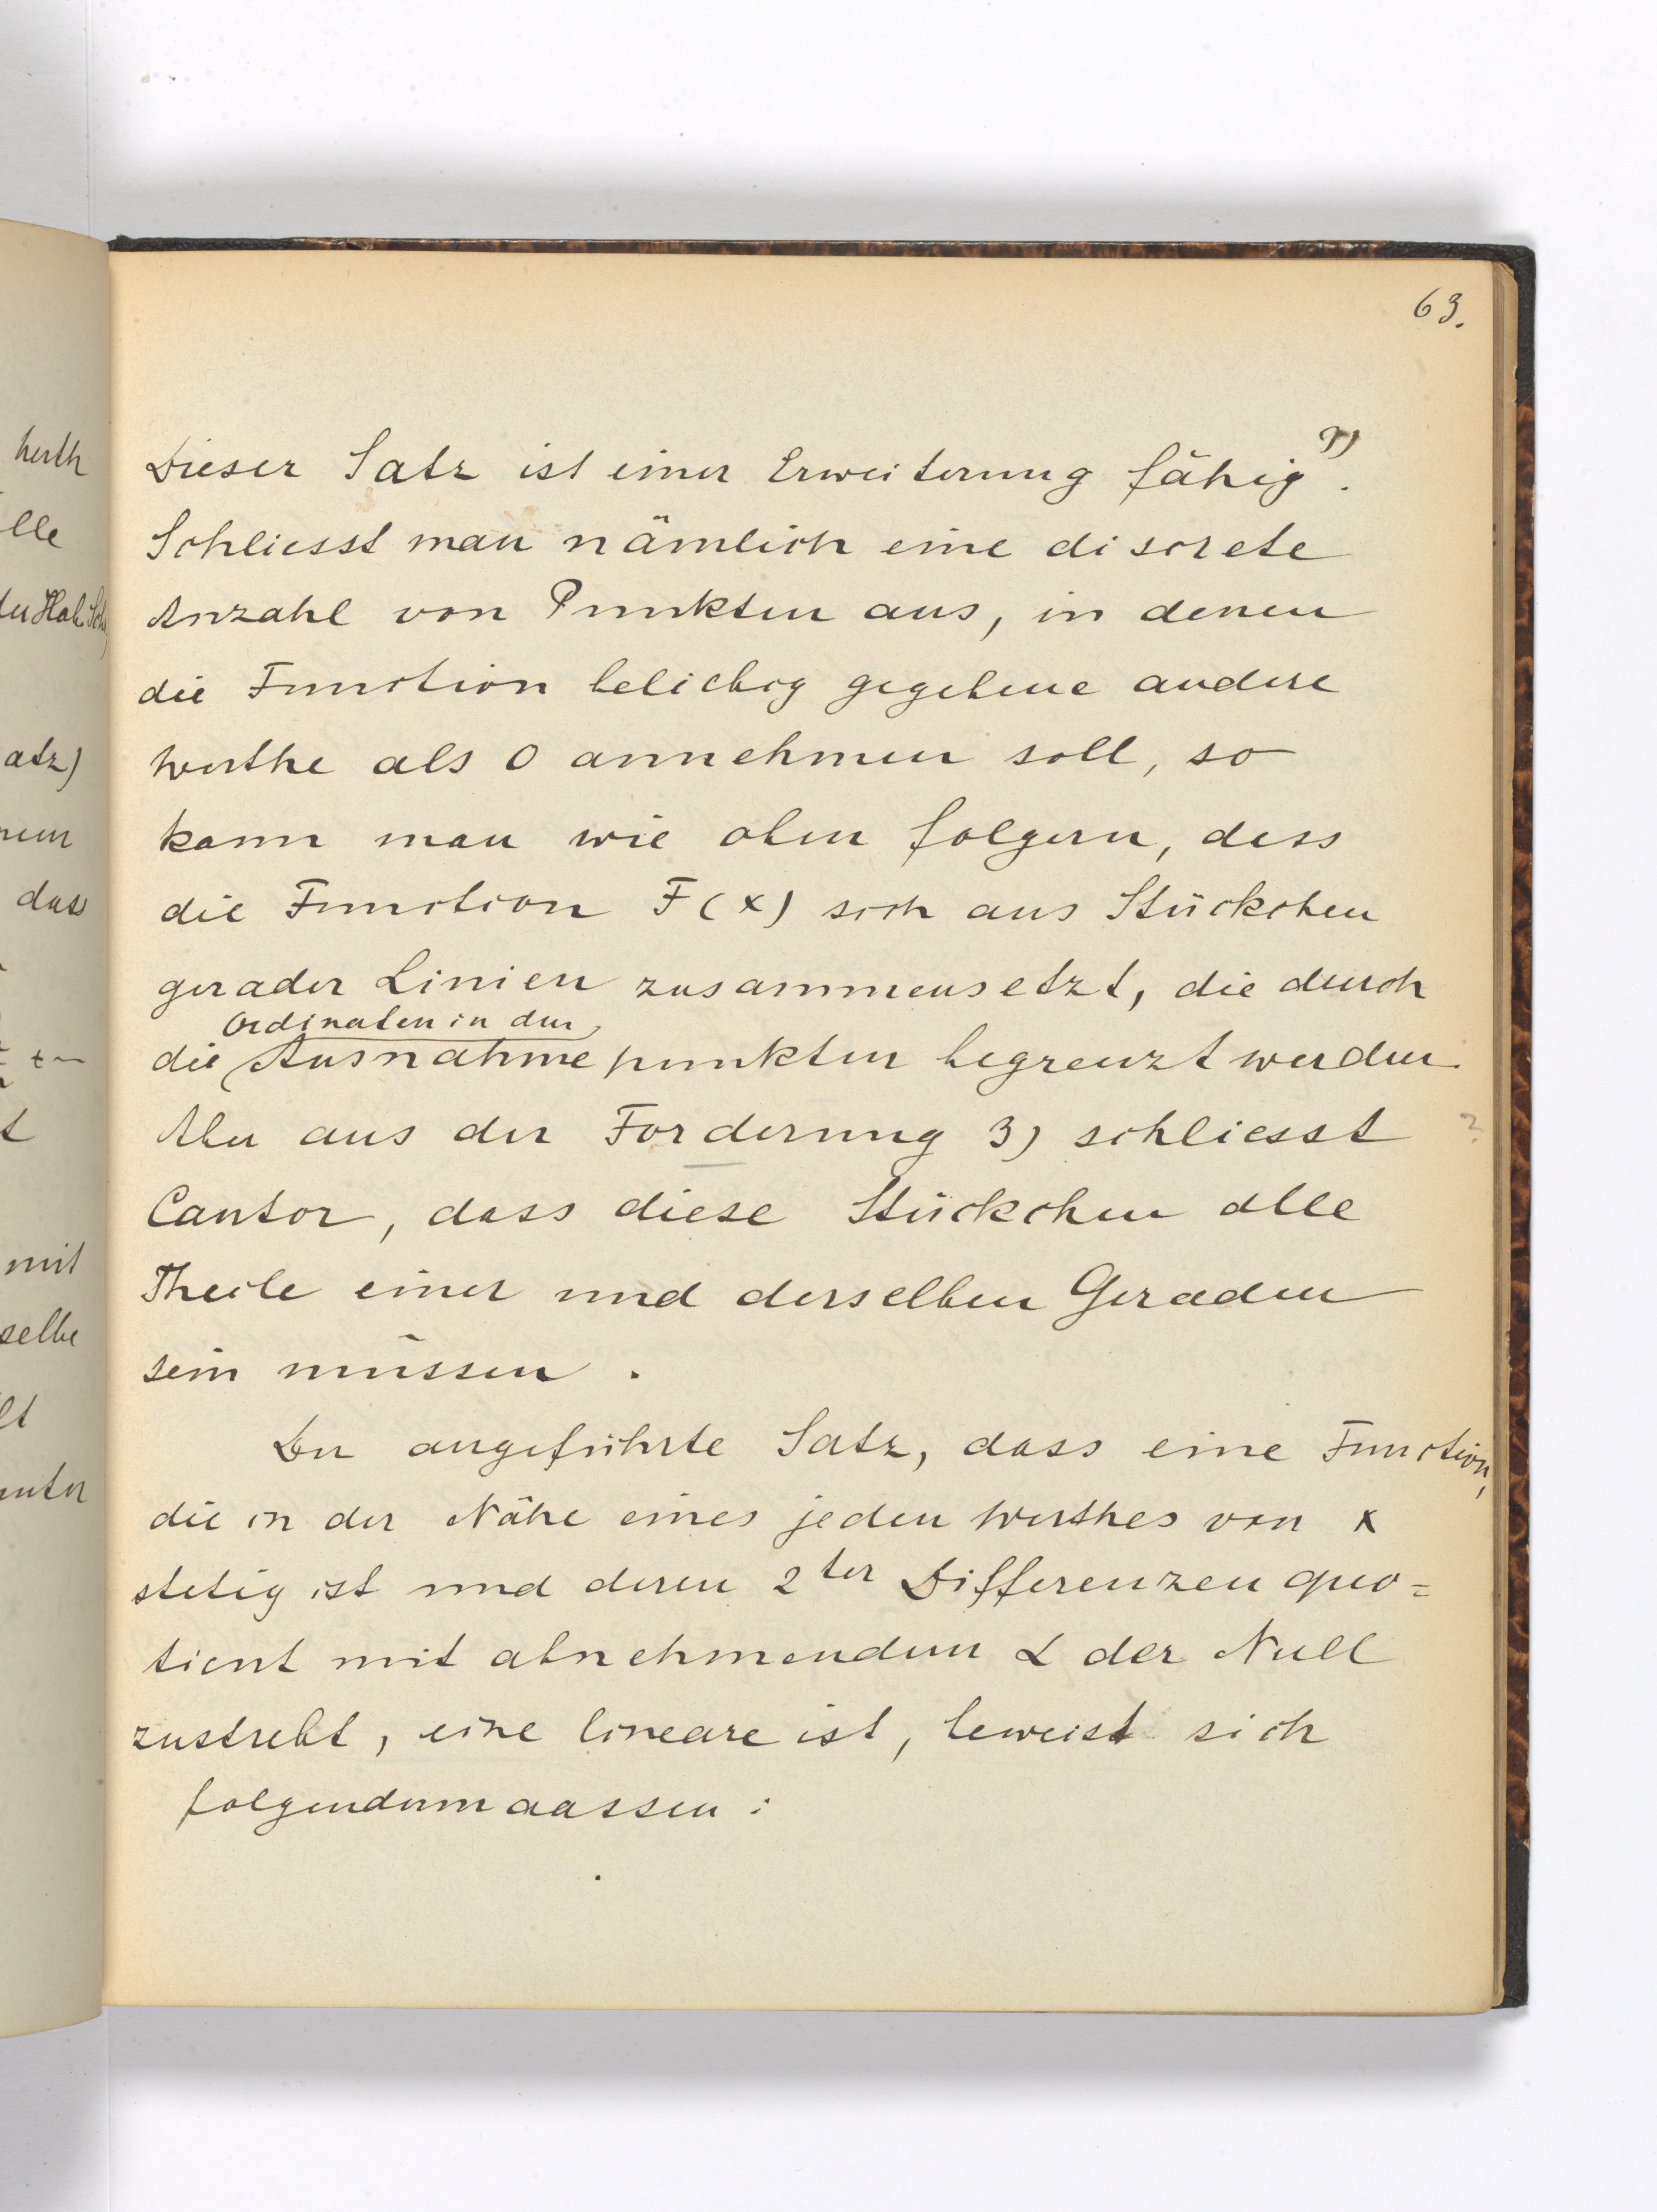 63.
Dieser Satz ist einer Erweiterung fähig 9).
Schliesst man nämlich eine discrete
Anzahl von Punkten aus, in denen
die Function beliebig gegebene andere
Werthe als 0 annehmen soll, so
kann man wie oben folgern, dass
die Function F(x) sich aus Stückchen
gerader Linien zusammensetzt, die durch
Ordinaten in den
die Ausnahmepunkten begrenzt werden.
Aber aus der Forderung 3) schliesst ?
Cantor, dass diese Stückchen alle
Theile einer und derselben Geraden
sein müssen.
Der angeführte Satz, dass eine Function,
die in der Nähe eines jeden Werthes von x
stetig ist und deren 2ter Differenzenquo=
tient mit abnehmendem α der Null
zustrebt, eine lineare ist, beweist sich
folgendermaassen: